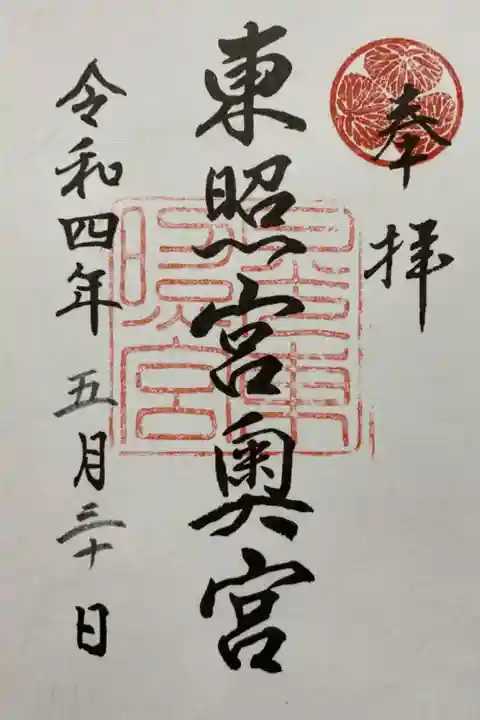 奉拝
東照宮奥宮
令和四年五月三十日